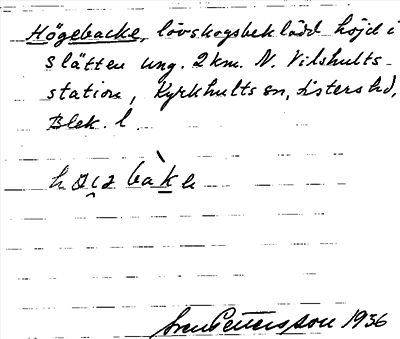 Högebacke, lövskogsbeklädd höjd i
slätten ung. 2 km. N. Vilshults-
station, Kyrkhults sn, Listers hd,
Blek. l.
Sven Pettersson 1936